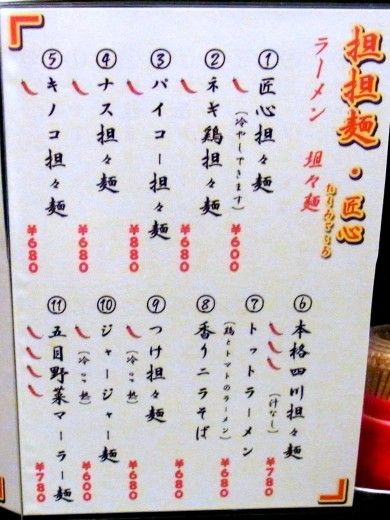 担担麺・匠心
たくみごころ
ラーメン 坦々麺
① 匠心担々麺 ¥600
(冷やしできます)
② ネギ鶏担々麺 ¥680
③ パイコー担々麺 ¥880
④ ナス担々麺 ¥680
⑤ キノコ担々麺 ¥680
⑥ 本格四川担々麺 (汁なし) ¥780
⑦ トットラーメン ¥680
(鶏とトマトのラーメン)
⑧ 香りニラそば ¥680
⑨ つけ担々麺 ¥680
⑩ ジャージャー麺 ¥600
(冷 or 熱)
(冷 or 熱)
⑪ 五目野菜マーラー麺 ¥780